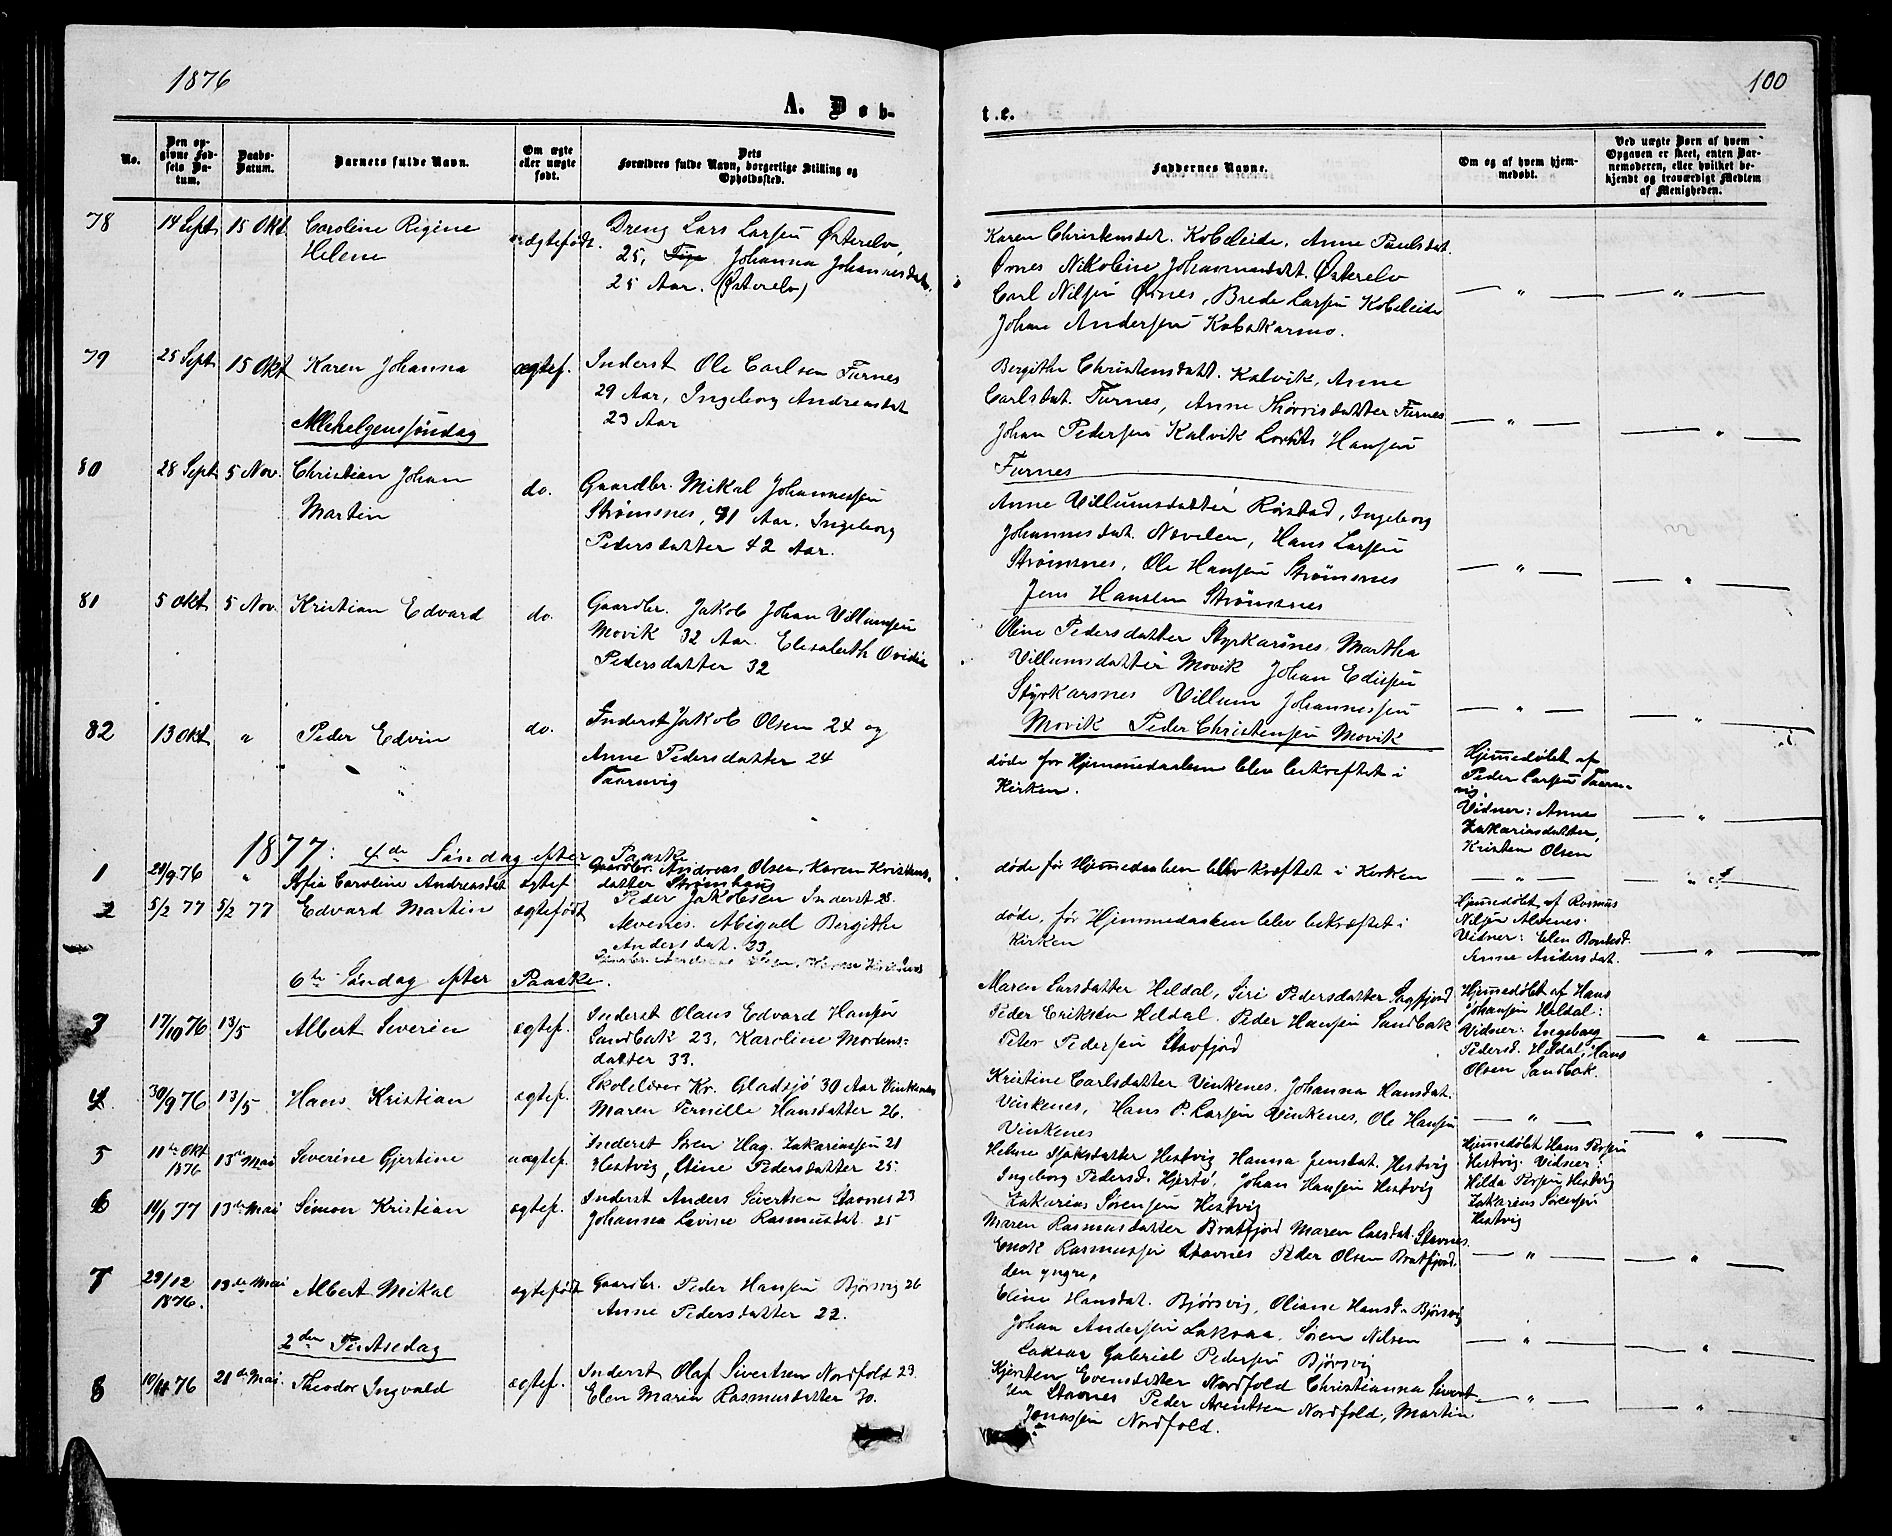 1876
100
A. Døb-
t.e.
No.
Den op-
givne Fød-
sels Da-
tum.
Daabs-
Datum.
Barnets fulde Navn.
Om ægte
eller uægte
født.
Dets
Forældres fulde Navn, borgerlige Stilling og
Opholdssted.
Faddernes Navne.
Om og af hvem hjem-
medøbt.
Ved uægte Børn af hvem
Opgaven er skeet, enten Bar-
nemoderen, eller hvilket be-
kjendt og troværdigt Medlem
af Menigheden.
78 14 Sept 15 Okt Caroline Rigine
Helene
uægtefødt.
Dreng Lars Larsen Østerelv
25, Johanna Johannesdat.
25 Aar. (Østerelv)
Karen Christensdat. Kobeleide, Anne Paulsdat
Ørnes Nikoline Johannesdat. Østerelv
Carl Nilsen Ørnes, Brede Larsen Kobeleide
Johan Andersen Kobskarmo.
79 25 Sept 15 Okt Karen Johanna ægtef.
Inderst Ole Carlsen Furnes
29 Aar, Ingeborg Andreasdat
23 Aar
Bergithe Christensdatt. Kalvik, Anne
Carlsdat. Furnes, Anne Thorrisdatter Furnes
Johan Pedersen Kalvik Lorents Hansen
Furnes
Allehelgenssøndag
80 28 Sept 5 Nov. Christian Johan
Martin
do.
Gaardbr. Mikal Johannessen
Strømsnes, 41 Aar. Ingeborg
Pedersdatter 42 Aar.
Anne Villumsdatter Røistad, Ingeborg
Johannesdat. Nevelen, Hans Larsen
Strømsnes, Ole Hansen Strømsnes
Jens Hansen Strømsnes
81 5 Okt 5 Nov. Kristian Edvard do.
Gaardbr. Jakob Johan Villumsen
Movik 32 Aar. Elisabeth Ovidia
Pedersdatter 32
Oline Pedersdatter Styrkarsnes, Martha
Villumsdatter Movik Johan Edissen
Styrkarsnes Villum Johannessen
Movik Peder Christensen Movik
82 13 Okt " Peder Edvin do.
Inderst Jakob Olsen 24 og
Anne Pedersdatter 24
Taarnvig
døde før Hjemmedaaben blev bekræftet i
Kirken.
Hjemmedøbt af
Peder Larsen Taarn-
vig.
Vidner: Anna
Zakariasdatter,
Kristen Olsen
1877: 4de Søndag efter Paaske
1 29/9 76 " Sofie Caroline Andreasdat ægtef
Gaardbr. Andreas Olsen, Karen Kristens-
datter Strømhaug
døde før Hjemmedaaben blev kræftet i Kirken
2 5/2 77 5/2 77 Edvard Martin ægtefødt
Peder Jakobsen Inderst 28.
Alvenes. Abigael Bergithe
Andersdat. 33.
døde, før Hjemmedaaben blev bekræftet i
Kirken
Hjemmedøbt af Rasmus
Nilsen Alvenes.
Vidner: Elen
Anne Andersdat.
6te Søndag efter Paaske.
3 17/10 76 13/5 Albert Severin ægtef.
Inderst Olaus Edvard Hansen
Sandbak 23, Karoline Mortens-
datter 33.
Maren Larsdatter Heldal, Siri Pedersdatter Sagfjord
Peder Eriksen Heldal. Peder Hansen Sandbak
Peter Pedersen Stavfjord
Hjemmedøbt af Hans
Johansen Heldal:
Vidner: Ingeborg
Pedersd. Heldal, Hans
Olsen Sandbak.
4 30/9 76 13/5 Hans Kristian ægtef.
Skolelærer Kr. Gladsjø 30 Aar Vinkenes
Maren Pernille Hansdatter 26.
Kristine Carlsdatter Vinkenes. Johanna Hansdat.
Vinkenes, Hans P. Larsen Vinkenes, Ole Hansen
Vinkenes
5 11te Okt 1876 13de Mai Severine Gjertine uægtef.
Inderst Søren Hag. Zakariassen 21
Hestvig, Stine Pedersdatter 25
Helene Isaksdatter Hestvig Hanna Jensdat. Hestvig
Ingeborg Pedersd. Hjertø, Johan Hansen Hestvig
Zakarias Sørensen Hestvig
Hjemmedøbt Hans Persen
Hestvig. Vidner:
Hilda Persen Hestvig
Zakarias Sørensen
Hestvig
6 10/1 77 13de Mai Simon Kristian ægtef.
Inderst Anders Sivertsen Stavnes 23
Johanna Lavine Rasmusdat. 25
Maren Rasmusdatter Bratfjord Maren Larsdat. Stavnes.
Enok Rasmussen Stavnes Peder Olsen Bratfjord.
den yngre,
7 29/12 1876. 13de Mai Albert Mikal ægtefødt
Gaardbr. Peder Hansen Bjørsvig 26
Anne Pedersdatter 22.
Eline Hansdat. Bjørsvig, Oliane Hansd. Bjørsvig
Johan Andersen Laksaa. Søren Nilsen
Laksaa Gabriel Pedersen Bjørsvig
2den Pintsedag
8 10/11 76 21de Mai. Theodor Ingvald ægtef.
Inderst Olaf Sivertsen Nordfold 23
Elen Maria Rasmusdatter 30.
Kjersten Evensdatter Nordfold Christianna Sivert-
sen Stavnes Peder Arentsen Nordfold, Martin
Jonassen Nordfold.